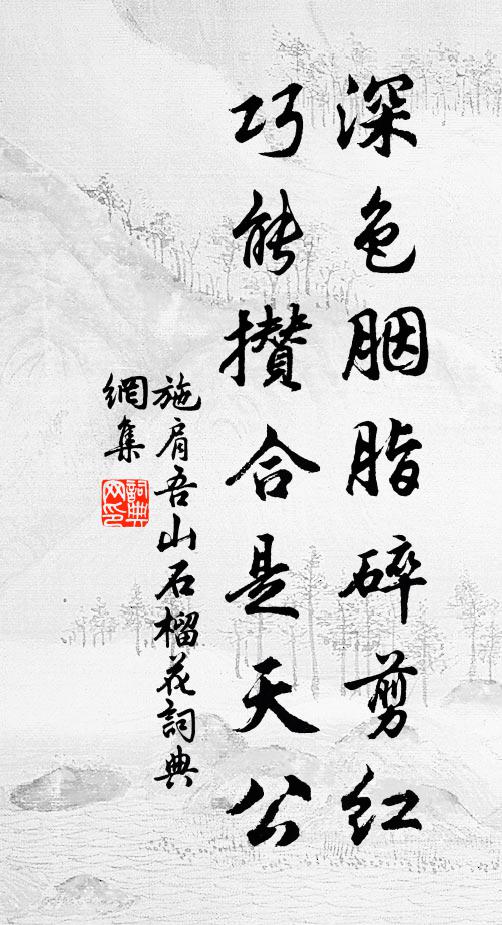 深色胭脂碎剪红
巧能攒合是天公
施肩吾山石榴花詞典
網集
詞典
网印